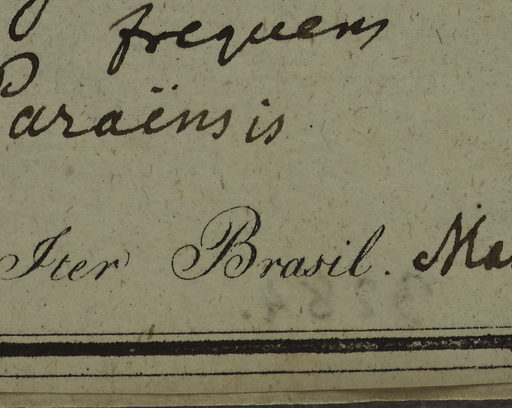 frequens
Paraënsis
Iter Brasil. Ma